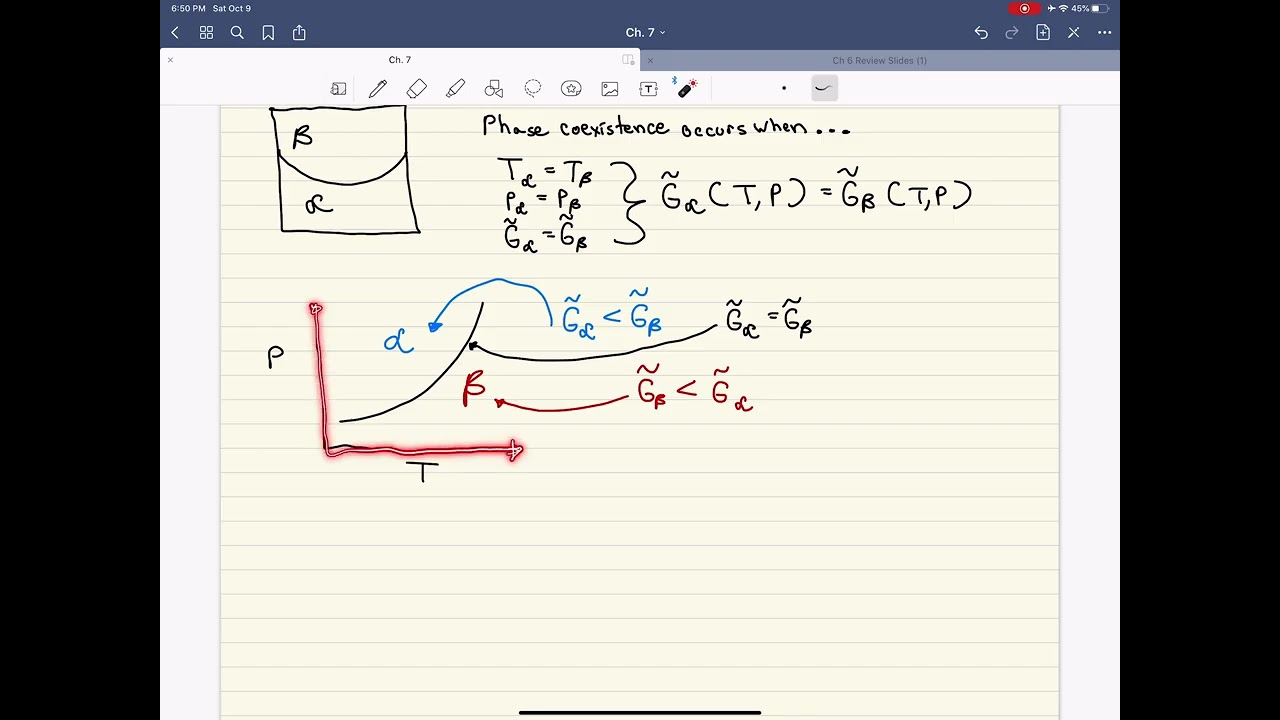 6:50 PM Sat Oct 9
45%
Ch. 7
Ch. 7
Ch 6 Review Slides (1)
T
β
α
Phase coexistence occurs when...
T_α = T_β
P_α = P_β
G̃_α = G̃_β
G̃_α (T, P) = G̃_β (T, P)
G̃_α < G̃_β
G̃_α = G̃_β
α
P
β
G̃_β < G̃_α
T